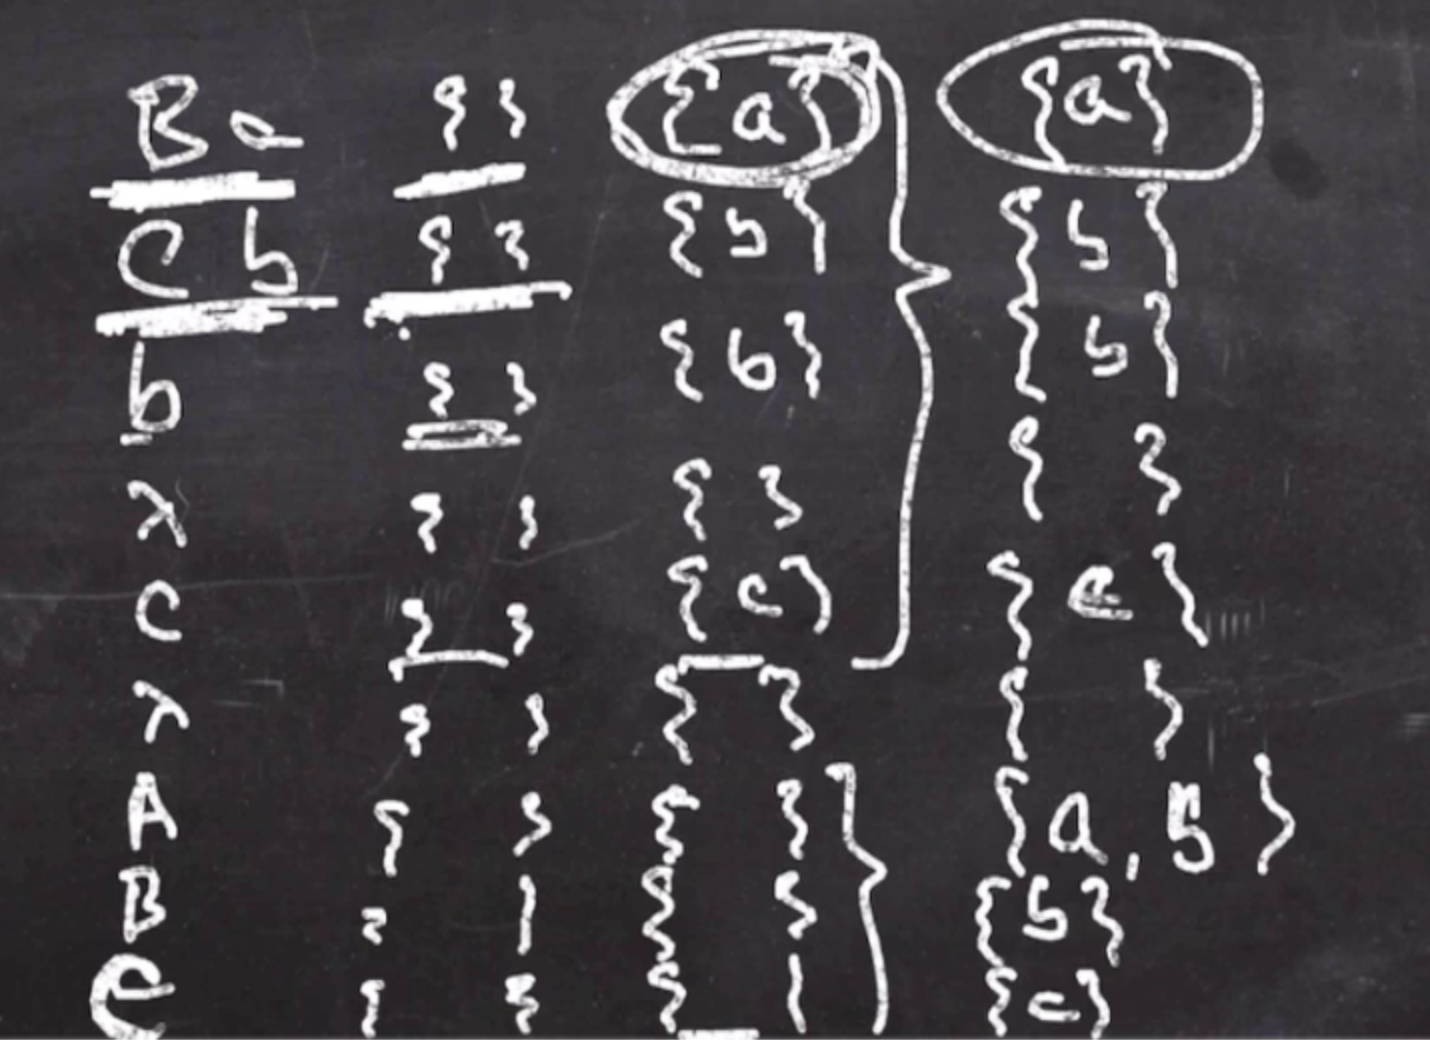 Ba { } { a } { a }
C b { } { b } { b }
b { } { b } { b }
λ { } { } { }
c { } { c } { c }
λ { } { } { }
A { } { } { a, b }
B { } { b }
C { } { c }